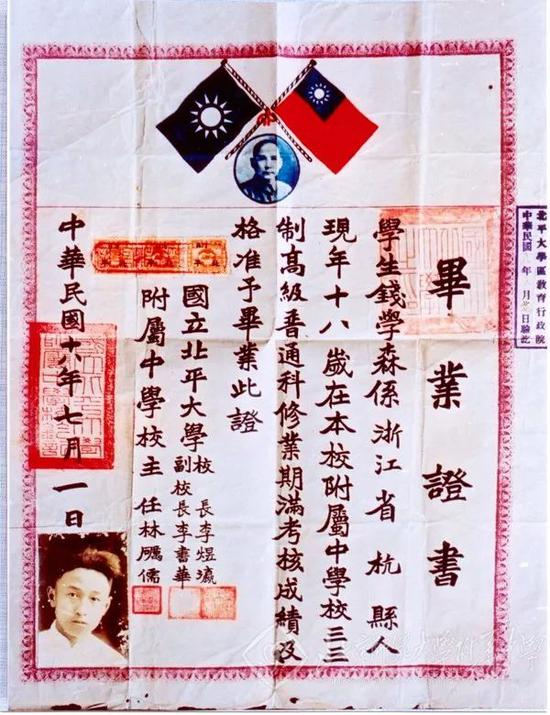 畢業證書
學生錢學森係浙江省杭縣人
現年十八歲在本校附屬中學校三三
制高級普通科修業期滿考核成績及
格准予畢業此證
國立北平大學校長李煜瀛
副校長李書華
附屬中學校主任林礪儒
中華民國十八年七月一日
北平大學區教育行政院
中華民國年月日驗訖